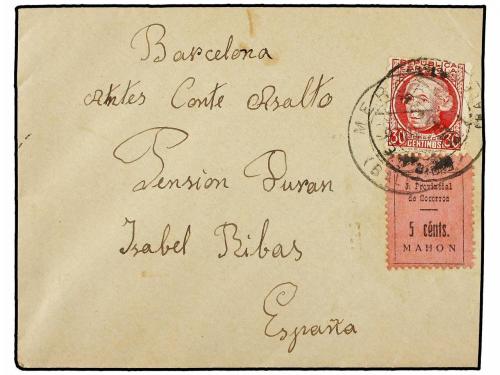 Barcelona
Antes Conte Asalto
Pension Duran
Isabel Ribas
España
REPUBLICA
30 CENTIMOS 30
MER
(BAL
J. Provincial
de Socorros
5 cénts.
MAHON